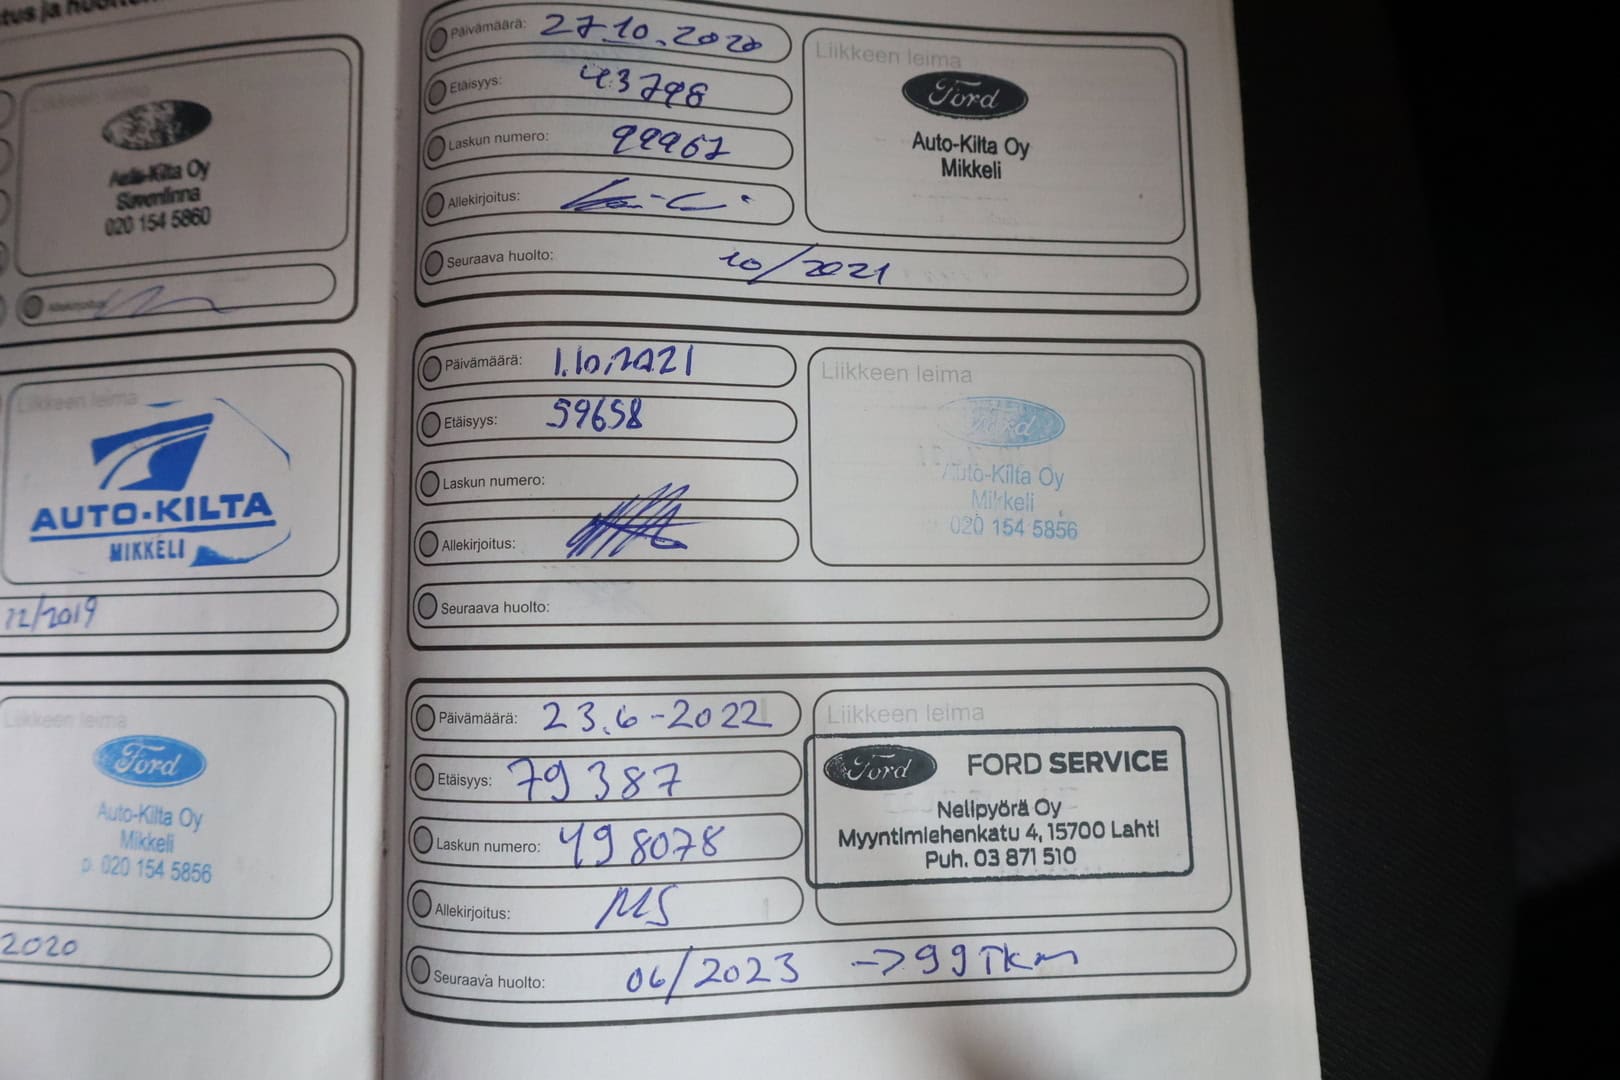 Liikkeen leima
Auto-Kilta Oy
Savonlinna
020 154 5860
Allekirjoitus:
Liikkeen leima
AUTO-KILTA
MIKKELI
12/2019
Liikkeen leima
Ford
Auto-Kilta Oy
Mikkeli
p. 020 154 5856
2020
Päivämäärä: 27.10.2020
Etäisyys: 43798
Laskun numero: 99967
Allekirjoitus:
Seuraava huolto: 10/2021
Liikkeen leima
Ford
Auto-Kilta Oy
Mikkeli
Päivämäärä: 1.10.2021
Etäisyys: 59658
Laskun numero:
Allekirjoitus:
Seuraava huolto:
Liikkeen leima
Ford
Auto-Kilta Oy
Mikkeli
020 154 5856
Päivämäärä: 23.6-2022
Etäisyys: 79387
Laskun numero: 498078
Allekirjoitus: MS
Seuraava huolto: 06/2023 -> 99Tkm
Liikkeen leima
Ford FORD SERVICE
Nelipyörä Oy
Myyntimiehenkatu 4, 15700 Lahti
Puh. 03 871 510